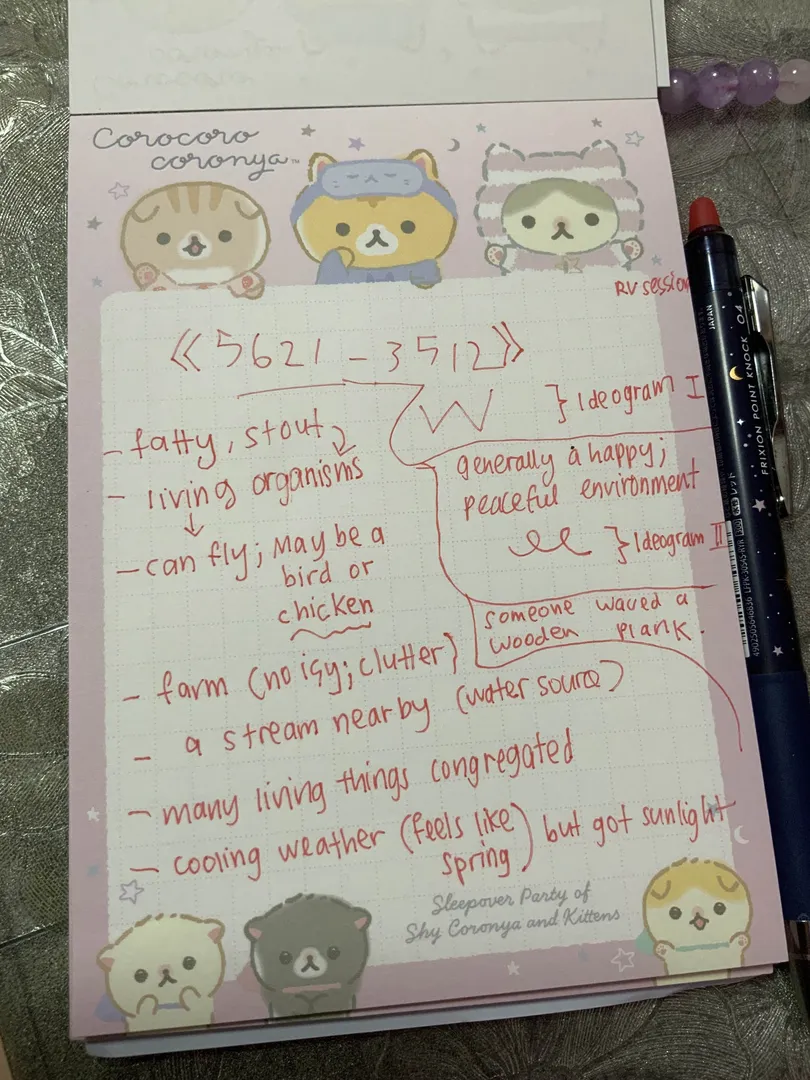 Corocoro
coronya™
RV session
《5621-3512》
W } Ideogram I
- fatty, stout
- living organisms
- can fly; Maybe a
bird or
chicken
generally a happy;
peaceful environment
} Ideogram II
someone waved a
wooden plank.
- farm (noisy; clutter)
- a stream nearby (water source)
- many living things congregated
- cooling weather (feels like
spring) but got sunlight
Sleepover Party of
Shy Coronya and Kittens
JAPAN
FRIXION POINT KNOCK 04